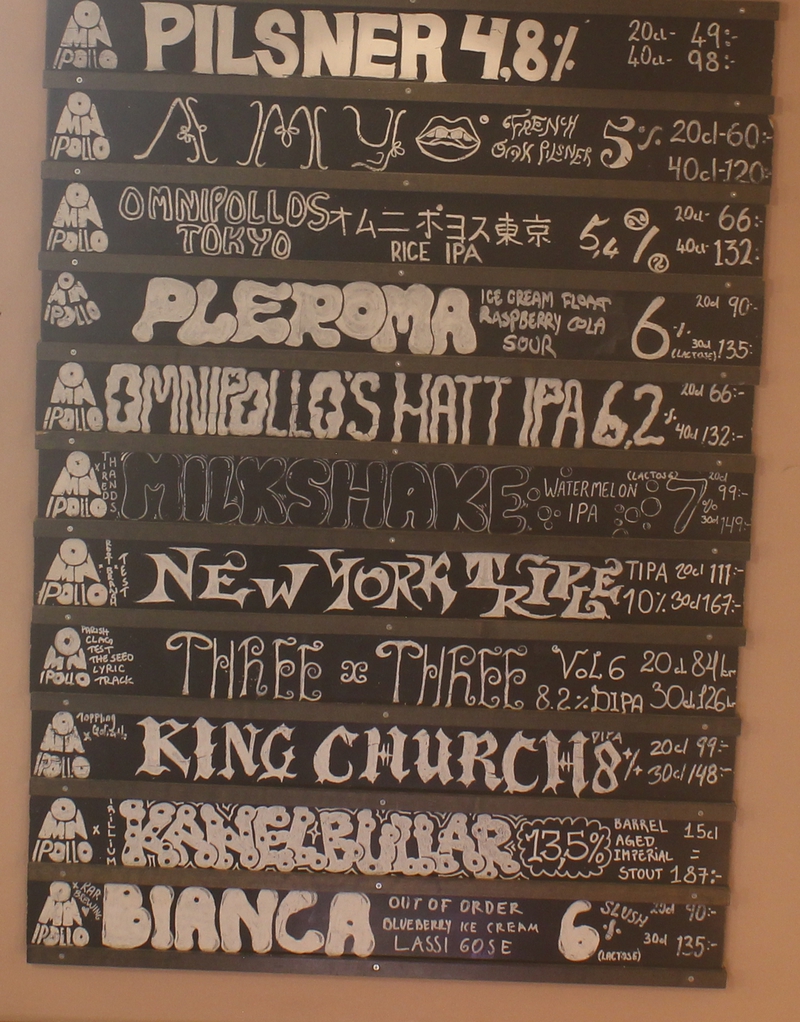 OMNIPOLLO
PILSNER 4,8%
20cl- 49:-
40cl- 98:-
OMNIPOLLO
AMY
FRENCH
OAK PILSNER
5%
20cl-60:-
40cl-120:-
OMNIPOLLO
OMNIPOLLOS
TOKYO
オムニポヨス東京
RICE IPA
5,4%
20cl- 66:-
40cl- 132:-
OMNIPOLLO
PLEROMA
ICE CREAM FLOAT
RASPBERRY COLA
SOUR
6%
(LACTOSE)
20cl 90:-
30cl 135:-
OMNIPOLLO
OMNIPOLLO'S HATT IPA 6,2%
20cl 66:-
40cl 132:-
OMNIPOLLO
x TIRED HANDS
MILKSHAKE
WATERMELON
IPA
(LACTOSE)
7%
20cl 99:-
30cl 149:-
OMNIPOLLO
TEST
NEW YORK TRIPLE
TIPA 20cl 111:-
10% 30cl 167:-
OMNIPOLLO
PARISH
TEST
THE SEED
LYRIC
TRACK
THREE x THREE
VOL 6 20cl 84kr
8.2% DIPA 30cl 126kr
OMNIPOLLO
x Toppling Goliath
KING CHURCH
DIPA
8%
20cl 99:-
30cl 148:-
OMNIPOLLO
x TRILLIUM
KANELBULLAR
13,5%
BARREL
AGED
IMPERIAL
STOUT
15cl
=
187:-
OMNIPOLLO
BREWING
BIANCA
OUT OF ORDER
BLUEBERRY ICE CREAM
LASSI GOSE
6%
SLUSH
(LACTOSE)
20cl 90:-
30cl 135:-